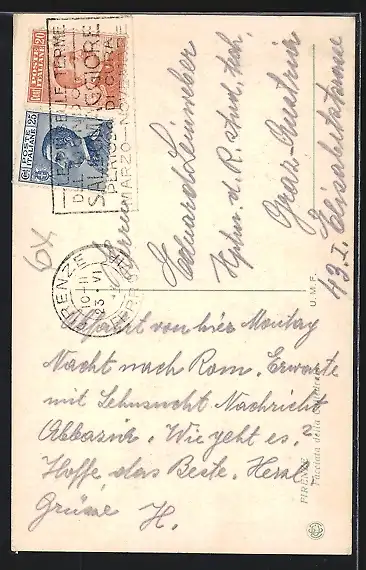 POSTE ITALIANE 20
POSTE ITALIANE 25
LE PIU BELLE TERME
SALSOMAGGIORE
SPLENDIDE CURE
MARZO - NOVEMBRE
FIRENZE
10-11
23 · VI
FERROVIA
Herrn
Eduard Leinweber
Hptm. d. R. stud. tech.
Graz Austria
43. I. Elisabethstrasse
Abfahrt von hier Montag
Nacht nach Rom. Erwarte
mit Sehnsucht Nachricht
Abbazia. Wie geht es?
Hoffe das Beste. Herzl.
Grüsse H.
U. M. F.
FIRENZE
Facciata della Cattedrale